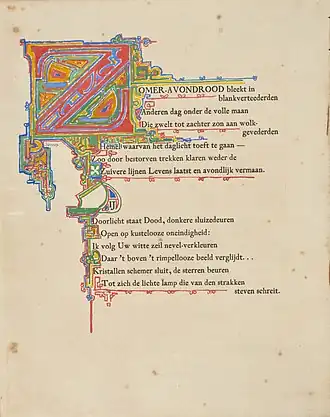 ZOMER-AVONDROOD bleekt in
blankverteederden
Anderen dag onder de volle maan
Die zwelt tot zachter zon aan wolk-
gevederden
Hemel waarvan het daglicht toeft te gaan —
Zoo door bestorven trekken klaren weder de
Zuivere lijnen Levens laatst en avondlijk vermaan.
Doorlicht staat Dood, donkere sluizedeuren
Open op kustelooze oneindigheid:
Ik volg Uw witte zeil nevel-verkleuren
Daar 't boven 't rimpellooze beeld verglijdt...
Kristallen schemer sluit, de sterren beuren
Tot zich de lichte lamp die van den strakken
steven schreit.